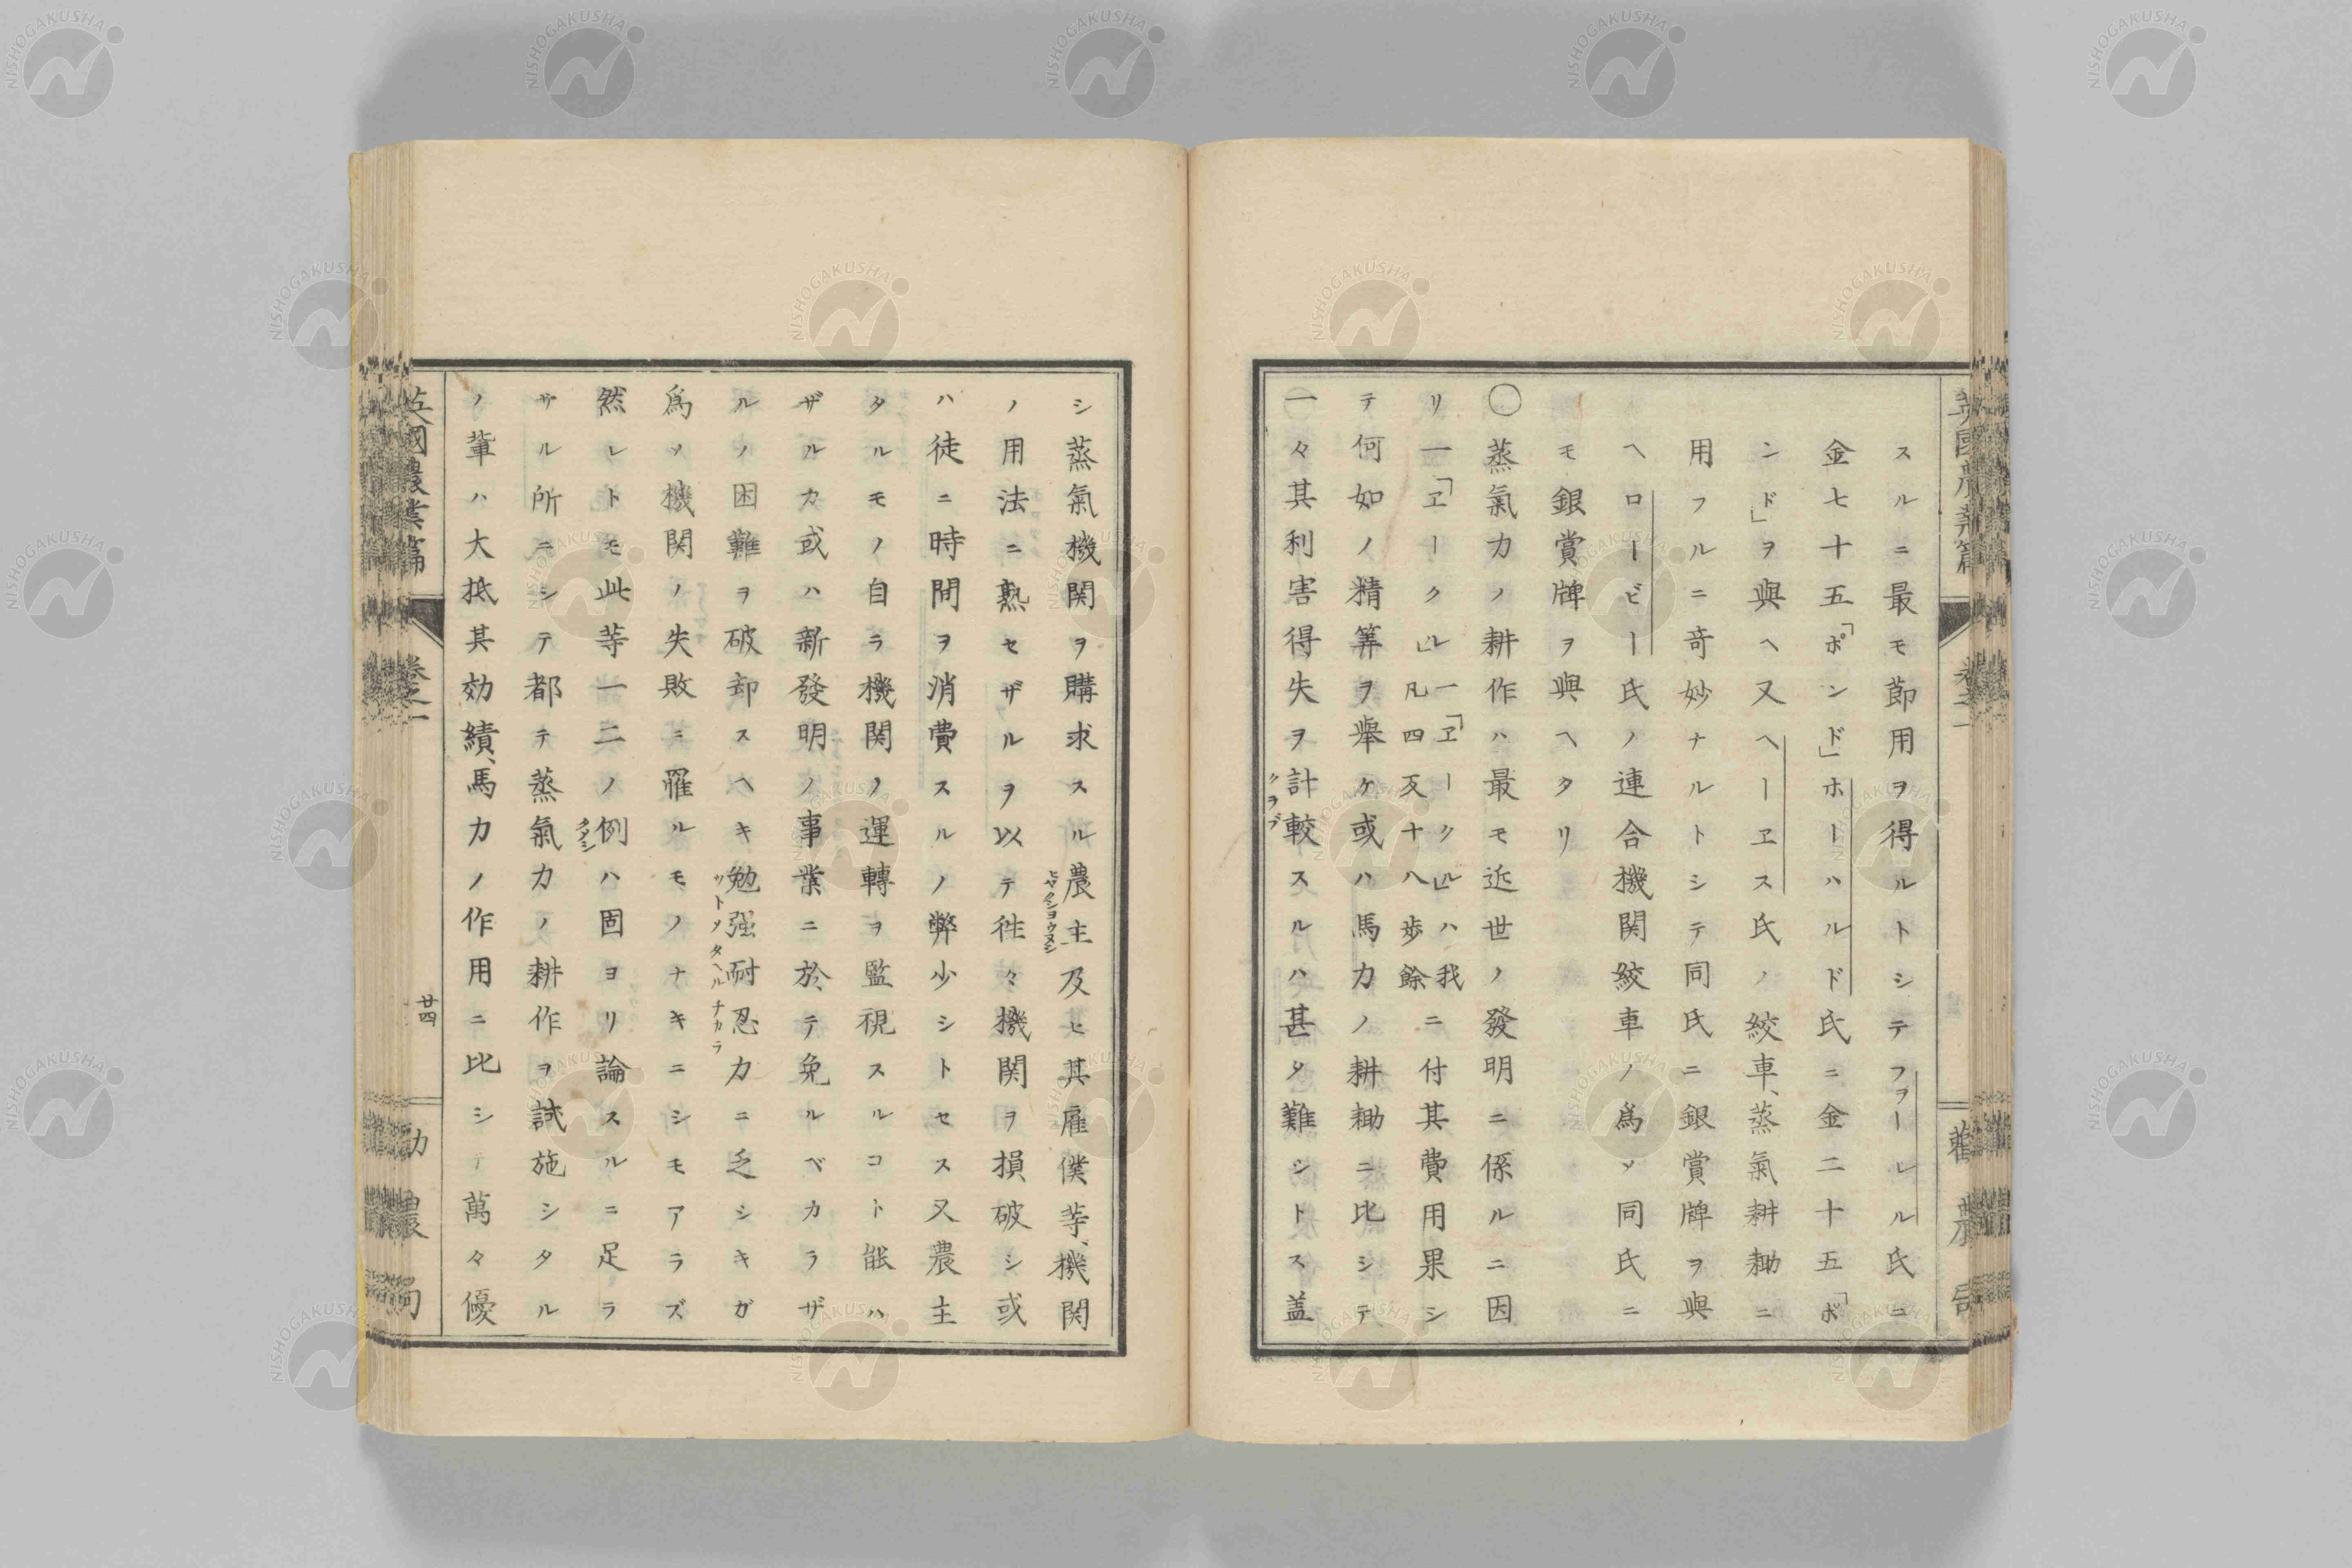 スルニ最モ節用ヲ得ルトシテフヲーレル氏ニ
金七十五「ポンド」ホーハルド氏ニ金二十五「ポ
ンド」ヲ與ヘ又ヘーヱス氏ノ絞車、蒸氣耕耡ニ
用フルニ竒妙ナルトシテ同氏ニ銀賞牌ヲ與
ヘロービー氏ノ連合機関絞車ノ爲メ同氏ニ
モ銀賞牌ヲ與ヘタリ
〇蒸氣力ノ耕作ハ最モ近世ノ發明ニ係ルニ因
リ一「ヱークル」一「ヱークル」ハ我凡四反十八歩餘ニ付其費用果シ
テ何如ノ精筭ヲ舉ケ或ハ馬力ノ耕耡ニ比シテ
一々其利害得失ヲ計較スルハ甚タ難シトス盖
クラブ
シ蒸氣機関ヲ購求スル農主及ヒ其雇僕等、機関
ヒヤクシヨウヌシ
ノ用法ニ熟セザルヲ以テ徃々機関ヲ損破シ或
ハ徒ニ時間ヲ消費スルノ弊少シトセス又農主
タルモノ自ラ機関ノ運轉ヲ監視スルコト能ハ
ザルカ或ハ新發明ノ事業ニ於テ免ルベカラザ
ルノ困難ヲ破却スヘキ勉强耐忍力ニ乏シキガ
ツトメタヘルチカラ
爲メ機関ノ失敗ニ罹ルモノナキニシモアラズ
然レトモ此等一二ノ例ハ固ヨリ論スルニ足ラ
タメシ
サル所ニシテ都テ蒸氣力ノ耕作ヲ試施シタル
ノ輩ハ大抵其効績、馬力ノ作用ニ比シテ萬々優
英國農業篇
卷之一
廿四
農